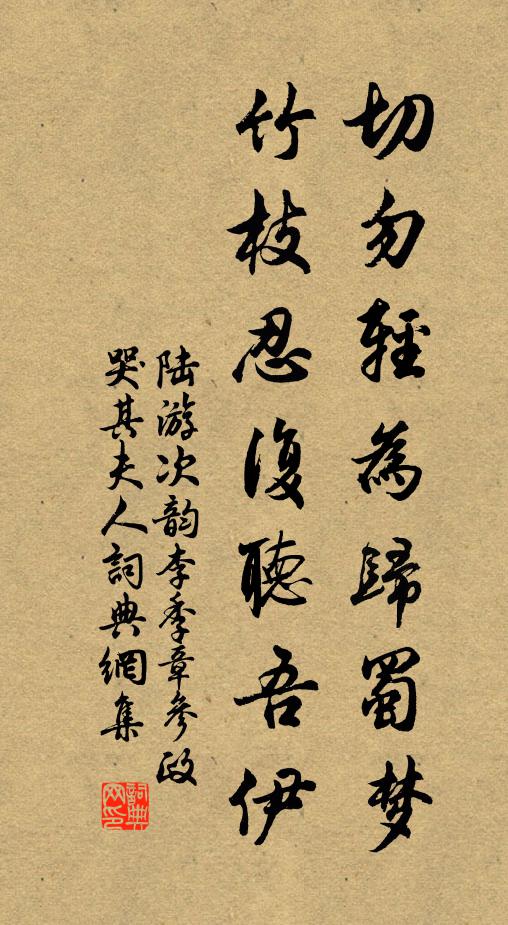 切勿輕為歸蜀梦
竹枝忍復聽吾伊
陆游次韵李季章參政
哭其夫人詞典網集
詞典
网印